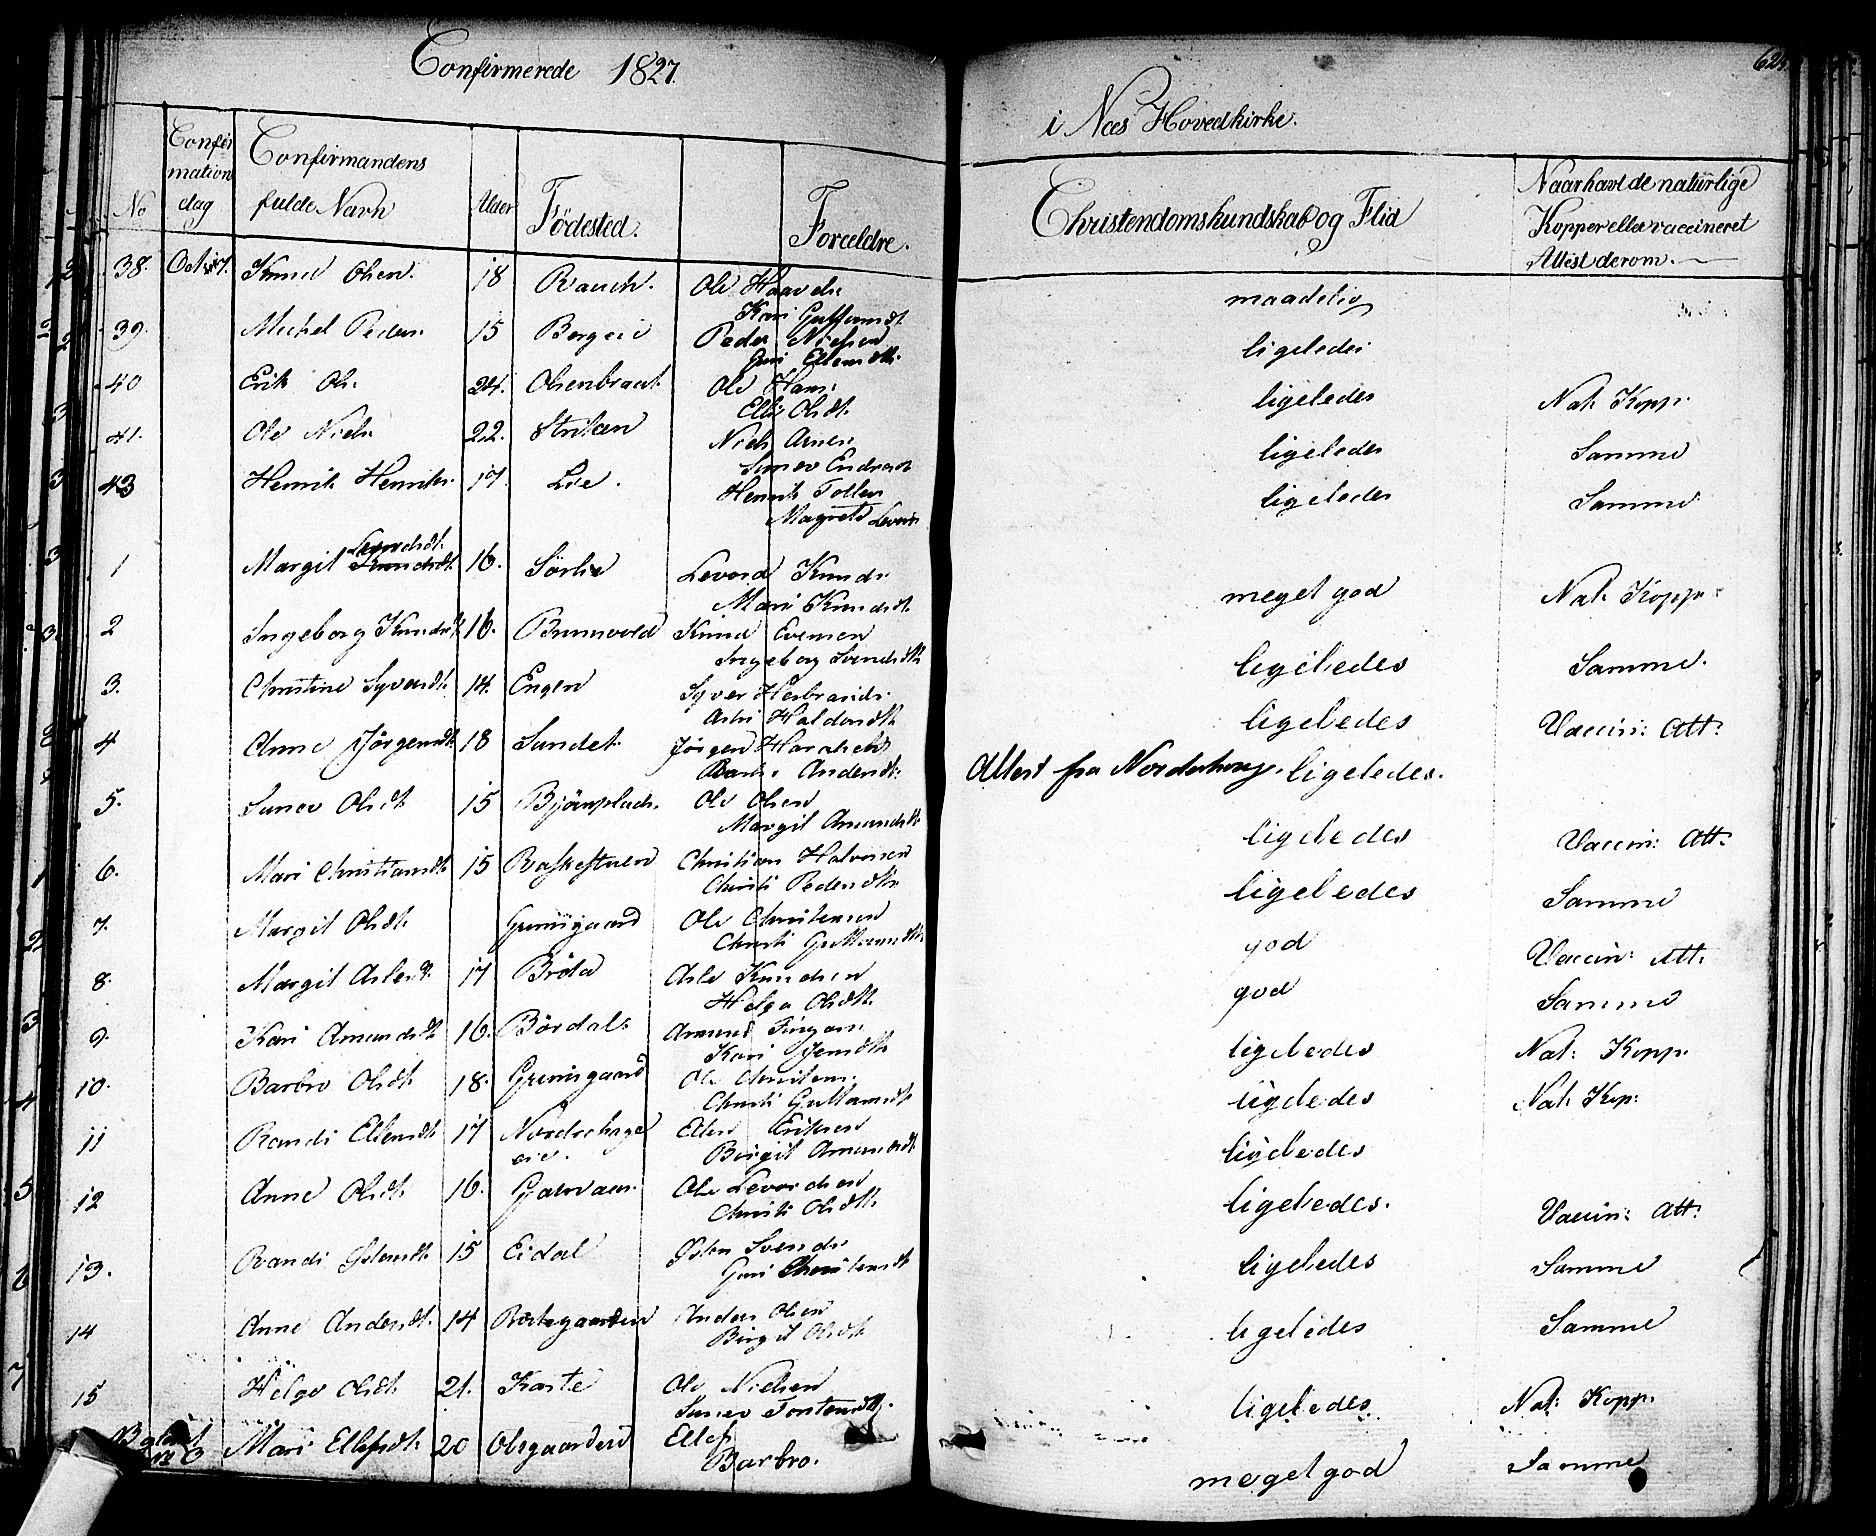 Confirmerede 1827.
i Næs Hovedkirke.
No
Confirmation dag
Confirmandens fulde Navn
Alder
Födested.
Forældre.
Christendomskundskab og Flid
Naar havt de naturlige Kopper eller vaccineret Attest derom.
38. Knud Olsen. 18 Ole
Kari
maadelig
39. Michel Peders. 15 Bergeie Peder Nielsen
Guri
ligeledes
40 Erik Ols. 24. Olsenbraat. Ole Hans.
Olsdt.
ligeledes Nat. Kopp.
41. Ole Niels. 22. Niels Arnes.
ligeledes Samme
43 Henrik Henriks. 17. Lie. Henrik
Magrete
ligeledes Samme
Levordsdt.
1 Margit Knudsdt. 16. Sörlie Levord Knuds.
Mari Knudsdt.
meget god Nat. Kopp.
2 Ingeborg Knudsdt. 16. Brunvold Knud Evensen
Ingeborg Svendsdtr.
ligeledes Samme.
3. Christine Syversdt. 14. Engen Syver Herbrands.
ligeledes Vaccin: Att:
4 Anne Jörgensdt. 18 Sundet. Jörgen
Andersdt.
Attest fra Norderhoug. ligeledes.
5. Olsdt. 15 Björnplads. Ole Olsen
Margit Amundsdt.
ligeledes Vaccin: Att:
6. Mari Christiansdt. 15 Christian Halvorsen
Christi Pedersdtr.
ligeledes Samme
7. Margit Olsdt. Grimsgaard Ole Christensen
Christi Guttormsdtr.
god Vaccin: Att:
8. Margit Aslesdt. 17 Bröta Asle Knudsen
Helga Olsdtr.
god Samme
9. Kari Amundsdt. 16. Bördals. Amund
Kari Jensdtr.
ligeledes Nat: Kopp.
10. Barbro Olsdt. 18. Grimsgaard Ole Christens.
Christi Guttormsdt.
ligeledes Nat. Kop:
11 Randi Ellensdt. 17 Nordrehage Ellen Eriksen
eie. Birgit Amundsdt.
ligeledes
12 Anne Olsdt. 16. Ole Levordsen
Christi Olsdtr.
ligeledes. Vaccin: Att:
13. Randi Östensdt. 15 Eidal Östen Svends.
Guri Christensdt.
ligeledes Samme
14 Anne Andersdt. 14 Anders Olsen
Birgit Olsdt.
ligeledes Samme
15 Helge Olsdt. 21. Karte Ole Nielsen
ligeledes Nat: Kopp.
Mari Ellefsdt. 20 Olsgaarderd Ellef
Barbro.
meget god Samme